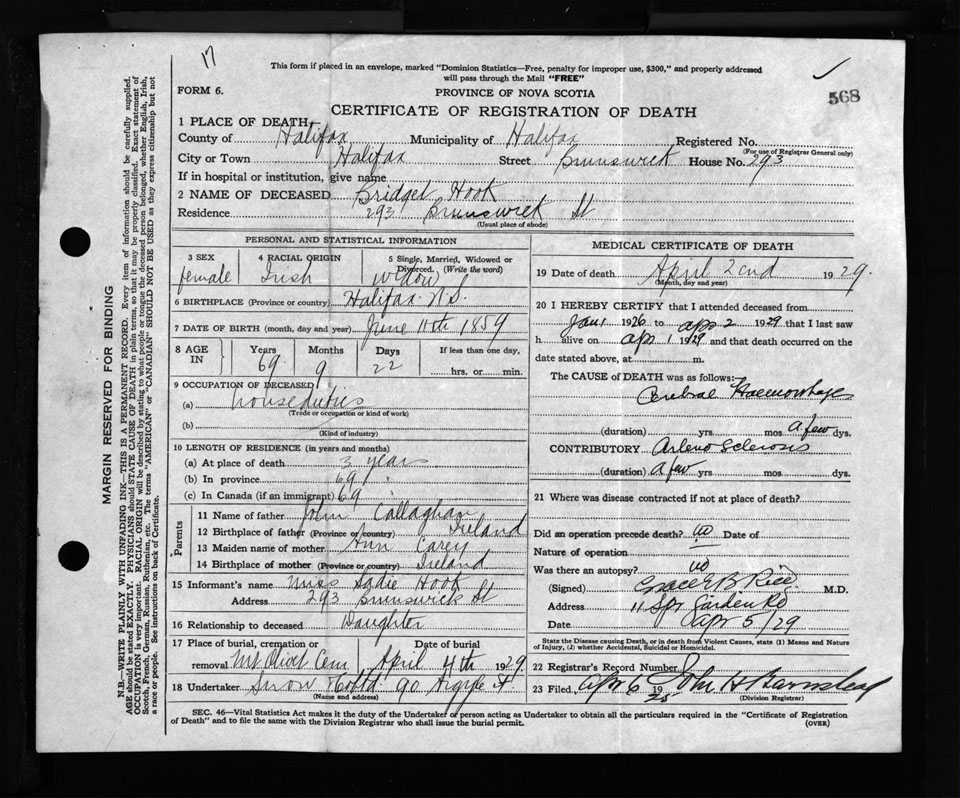 17
This form if placed in an envelope, marked "Dominion Statistics—Free, penalty for improper use, $300," and properly addressed
will pass through the Mail "FREE"
568
FORM 6.
PROVINCE OF NOVA SCOTIA
CERTIFICATE OF REGISTRATION OF DEATH
1 PLACE OF DEATH
County of Halifax Municipality of Halifax Registered No.
(For use of Registrar General only)
City or Town Halifax Street Brunswick House No. 293
If in hospital or institution, give name
2 NAME OF DECEASED Bridget Hook
Residence 293 Brunswick St
(Usual place of abode)
MARGIN RESERVED FOR BINDING
N.B.—WRITE PLAINLY WITH UNFADING INK—THIS IS A PERMANENT RECORD. Every item of information should be carefully supplied.
AGE should be stated EXACTLY. PHYSICIANS should STATE CAUSE OF DEATH in plain terms, so that it may be properly classified. Exact statement of
OCCUPATION is very important. RACIAL ORIGIN will be described by stating to what people or tongue the deceased person belonged, whether English, Irish,
Scotch, French, German, Russian, Ruthenian, etc. The terms "AMERICAN" or "CANADIAN" SHOULD NOT BE USED as they express citizenship but not
a race or people. See instructions on back of Certificate.
PERSONAL AND STATISTICAL INFORMATION
3 SEX female
4 RACIAL ORIGIN Irish
5 Single, Married, Widowed or
Divorced. (Write the word)
Widow
6 BIRTHPLACE (Province or country) Halifax N.S.
7 DATE OF BIRTH (month, day and year) June 11th 1859
8 AGE IN Years 69 Months 9 Days 22 If less than one day,
hrs. or min.
9 OCCUPATION OF DECEASED
(a) house duties
(Trade or occupation or kind of work)
(b)
(Kind of industry)
10 LENGTH OF RESIDENCE (in years and months)
(a) At place of death 3 years
(b) In province 69 "
(c) In Canada (if an immigrant) 69
Parents
11 Name of father John Callaghan
12 Birthplace of father (Province or country) Ireland
13 Maiden name of mother Ann Carey
14 Birthplace of mother (Province or country) Ireland
15 Informant's name Miss Sadie Hook
Address 293 Brunswick St
16 Relationship to deceased Daughter
17 Place of burial, cremation or Date of burial
removal Mt Olivet Cem April 4th 1929
18 Undertaker Snow & Co Ltd 90 Argyle St.
(Name and address)
MEDICAL CERTIFICATE OF DEATH
19 Date of death April 2cnd 1929.
(Month, day and year)
20 I HEREBY CERTIFY that I attended deceased from
Jan 1 1926 to apr 2 1929 that I last saw
h alive on apr 1 1929 and that death occurred on the
date stated above, at m.
The CAUSE of DEATH was as follows:
Cerebral Haemorrhage
(duration) yrs mos a few dys.
CONTRIBUTORY Arterio Sclerosis
(duration) a few yrs. mos. dys.
21 Where was disease contracted if not at place of death?
Did an operation precede death? no Date of
Nature of operation
Was there an autopsy? no
(Signed) Grace E B Rice M.D.
Address 11 Spr Garden Rd
Date Apr 5/29
State the Disease causing Death, or in death from Violent Causes, state (1) Means and Nature
of Injury, (2) whether Accidental, Suicidal or Homicidal.
22 Registrar's Record Number
23 Filed, apr 6 19
(Division Registrar)
SEC. 46—Vital Statistics Act makes it the duty of the Undertaker or person acting as Undertaker to obtain all the particulars required in the "Certificate of Registration
of Death" and to file the same with the Division Registrar who shall issue the burial permit.
(OVER)